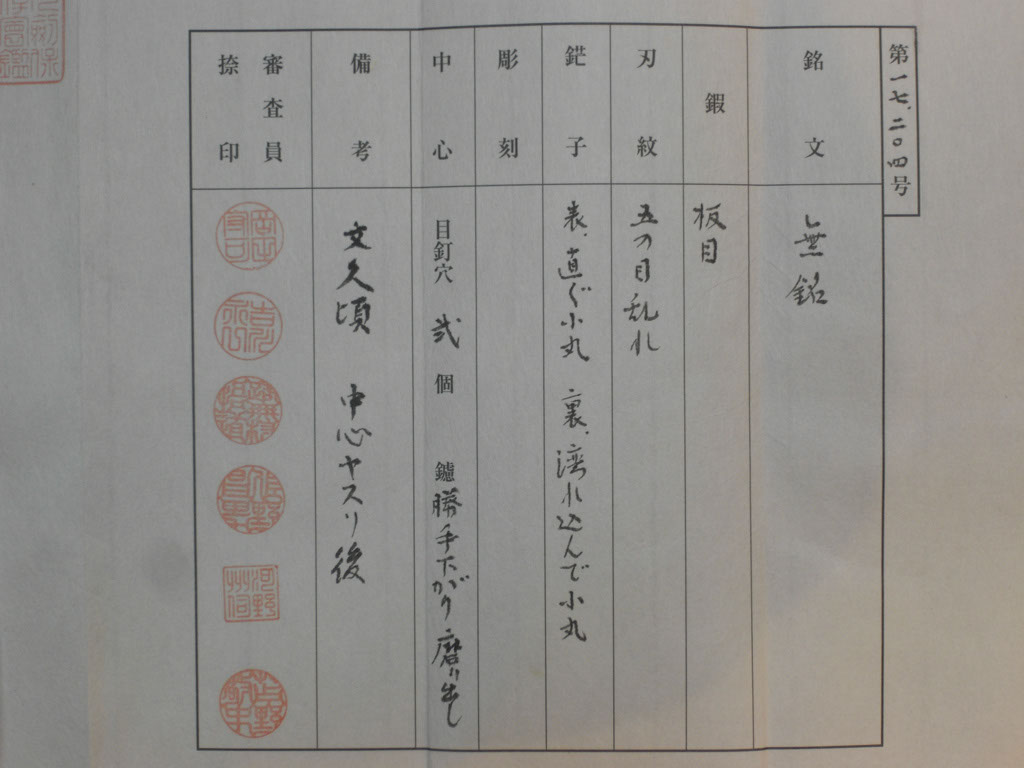 第一七、二〇四号
銘文
無銘
鍜
板目
刃紋
五の目乱れ
鋩子
表、直ぐ小丸 裏、湾れ込んで小丸
彫刻
中心
目釘穴 弐 個 鑢 勝手下がり 磨り出し
備考
文久頃 中心ヤスリ後
審査員
捺印